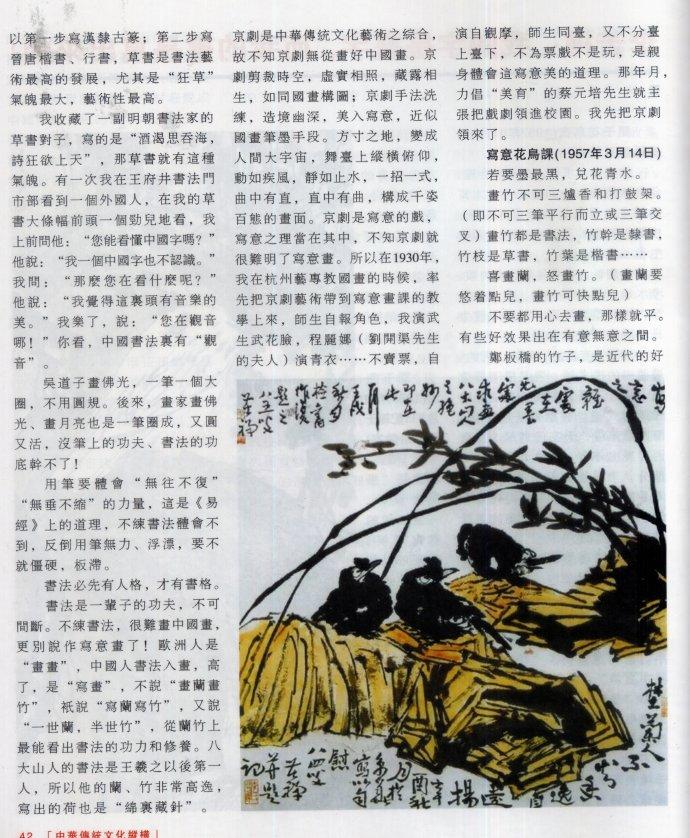 以第一步寫漢隸古篆；第二步寫
晉唐楷書、行書，草書是書法藝
術最高的發展，尤其是“狂草”
氣魄最大，藝術性最高。
我收藏了一副明朝書法家的
草書對子，寫的是“酒渴思吞海，
詩狂欲上天”，那草書就有這種
氣魄。有一次我在王府井書法門
市部看到一個外國人，在我的草
書大條幅前頭一個勁兒地看，我
上前問他：“您能看懂中國字嗎？”
他說：“我一個中國字也不認識。”
我問：“那麼您在看什麼呢？”
他說：“我覺得這裏頭有音樂的
美。”我樂了，說：“您在觀音
哪！”你看，中國書法裏有“觀
音”。
吳道子畫佛光，一筆一個大
圈，不用圓規。後來，畫家畫佛
光、畫月亮也是一筆圈成，又圓
又活，沒筆上的功夫、書法的功
底幹不了！
用筆要體會“無往不復”
“無垂不縮”的力量，這是《易
經》上的道理，不練書法體會不
到，反倒用筆無力、浮漂，要不
就僵硬，板滯。
書法必先有人格，才有書格。
書法是一輩子的功夫，不可
間斷。不練書法，很難畫中國畫，
更別說作寫意畫了！歐洲人是
“畫畫”，中國人書法入畫，高
了，是“寫畫”，不說“畫蘭畫
竹”，衹說“寫蘭寫竹”，又說
“一世蘭，半世竹”，從蘭竹上
最能看出書法的功力和修養。八
大山人的書法是王羲之以後第一
人，所以他的蘭、竹非常高逸，
寫出的荷也是“綿裏藏針”。
京劇是中華傳統文化藝術之綜合，
故不知京劇無從畫好中國畫。京
劇剪裁時空，虛實相照，藏露相
生，如同國畫構圖；京劇手法洗
練，造境幽深，美入寫意，近似
國畫筆墨手段。方寸之地，變成
人間大宇宙，舞臺上縱橫俯仰，
動如疾風，靜如止水，一招一式，
曲中有直，直中有曲，構成千姿
百態的畫面。京劇是寫意的戲，
寫意之理當在其中，不知京劇就
很難明了寫意畫。所以在1930年，
我在杭州藝專教國畫的時候，率
先把京劇藝術帶到寫意畫課的教
學上來，師生自報角色，我演武
生武花臉，程麗娜（劉開渠先生
的夫人）演青衣……不賣票，自
演自觀摩，師生同臺，又不分臺
上臺下，不為票戲不是玩，是親
身體會這寫意美的道理。那年月，
力倡“美育”的蔡元培先生就主
張把戲劇領進校園。我先把京劇
領來了。
寫意花鳥課(1957年3月14日)
若要墨最黑，兒花青水。
畫竹不可三爐香和打鼓架。
（即不可三筆平行而立或三筆交
叉）畫竹都是書法，竹幹是隸書，
竹枝是草書，竹葉是楷書……
喜畫蘭，怒畫竹。（畫蘭要
悠着點兒，畫竹可快點兒）
不要都用心去畫，那樣就平。
有些好效果出在有意無意之間。
鄭板橋的竹子，是近代的好
42 「中華傳統文化縱橫」